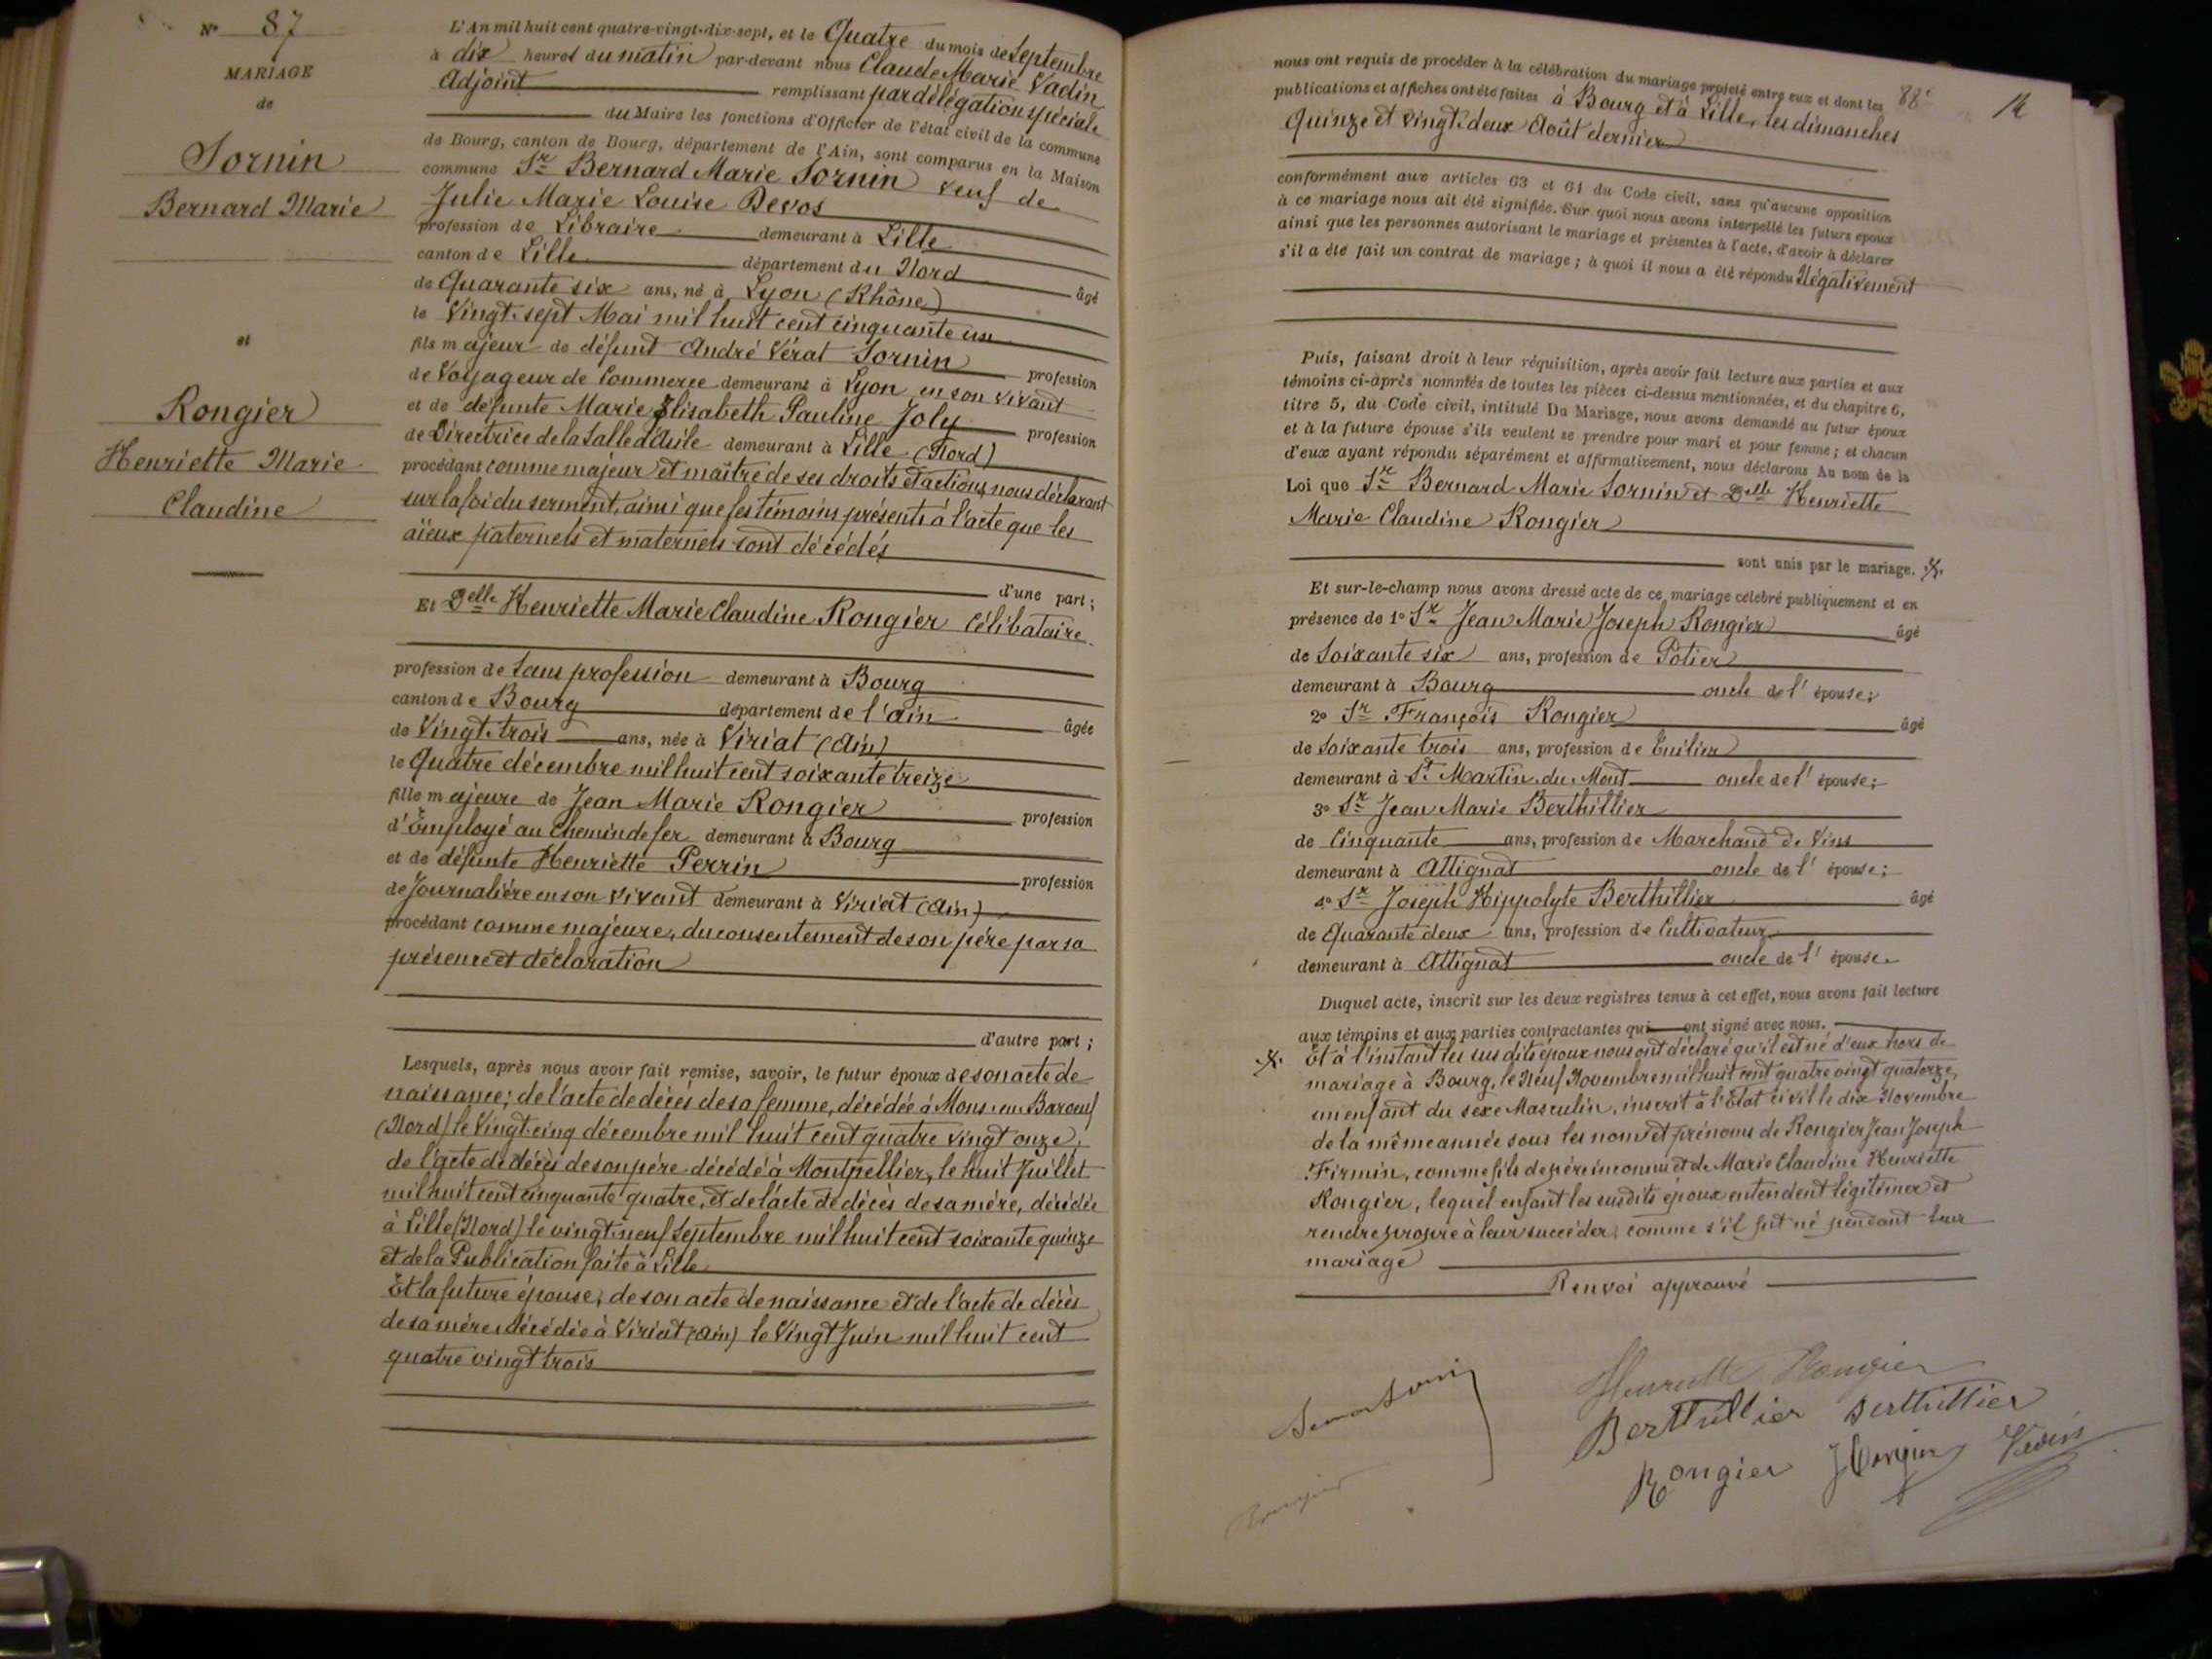 N° 87
MARIAGE
de
Sornin
Bernard Marie
et
Rongier
Henriette Marie
Claudine
L'An mil huit cent quatre-vingt-dix-sept, et le Quatre du mois de Septembre
à dix heures du matin par-devant nous Claude Marie Vadin
Adjoint remplissant par délégation spéciale
du Maire les fonctions d'Officier de l'état civil de la commune
de Bourg, canton de Bourg, département de l'Ain, sont comparus en la Maison
commune Sr Bernard Marie Sornin veuf de
Julie Marie Louise Devos
profession de Libraire demeurant à Lille
canton de Lille département du Nord
âgé
de Quarante six ans, né à Lyon (Rhône)
le Vingt-sept Mai mil huit cent cinquante un
fils majeur de défunt André Vérat Sornin profession
de Voyageur de Commerce demeurant à Lyon en son vivant
et de défunte Marie Elisabeth Pauline Joly profession
de Directrice de la Salle d'Asile demeurant à Lille (Nord)
procédant comme majeur et maître de ses droits et actions, nous déclarant
sur la foi du serment, ainsi que les témoins présents à l'acte que les
aïeux paternels et maternels sont décédés
d'une part;
Et Delle Henriette Marie Claudine Rongier Célibataire
profession de Sans profession demeurant à Bourg
canton de Bourg département de l'Ain âgée
de Vingt-trois ans, née à Viriat (Ain)
le Quatre décembre mil huit cent soixante treize
fille majeure de Jean Marie Rongier profession
d'Employé au Chemin de fer demeurant à Bourg
et de défunte Henriette Perrin profession
de Journalière en son vivant demeurant à Viriat (Ain)
procédant comme majeure, du consentement de son père par sa
présence et déclaration
d'autre part;
Lesquels, après nous avoir fait remise, savoir, le futur époux de son acte de
naissance; de l'acte de décès de sa femme, décédée à Mons-en-Baroeul
(Nord) le Vingt-cinq décembre mil huit cent quatre vingt onze,
de l'acte de décès de son père décédé à Montpellier, le huit Juillet
mil huit cent cinquante quatre, et de l'acte de décès de sa mère, décédée
à Lille (Nord) le vingt-neuf Septembre mil huit cent soixante quinze
et de la Publication faite à Lille
Et la future épouse, de son acte de naissance et de l'acte de décès
de sa mère décédée à Viriat (Ain) le Vingt Juin mil huit cent
quatre vingt trois
88e
12
nous ont requis de procéder à la célébration du mariage projeté entre eux et dont les
publications et affiches ont été faites à Bourg et à Lille, les dimanches
Quinze et Vingt-deux Août dernier
conformément aux articles 63 et 64 du Code civil, sans qu'aucune opposition
à ce mariage nous ait été signifiée. Sur quoi nous avons interpellé les futurs époux
ainsi que les personnes autorisant le mariage et présentes à l'acte, d'avoir à déclarer
s'il a été fait un contrat de mariage; à quoi il nous a été répondu Négativement
Puis, faisant droit à leur réquisition, après avoir fait lecture aux parties et aux
témoins ci-après nommés de toutes les pièces ci-dessus mentionnées, et du chapitre 6,
titre 5, du Code civil, intitulé Du Mariage, nous avons demandé au futur époux
et à la future épouse s'ils veulent se prendre pour mari et pour femme; et chacun
d'eux ayant répondu séparément et affirmativement, nous déclarons Au nom de la
Loi que Sr Bernard Marie Sornin et Delle Henriette
Marie Claudine Rongier
sont unis par le mariage. .X.
Et sur-le-champ nous avons dressé acte de ce mariage célébré publiquement et en
présence de 1° Sr Jean Marie Joseph Rongier âgé
de Soixante six ans, profession de Potier
demeurant à Bourg oncle de l'épouse;
2° Sr François Rongier âgé
de Soixante trois ans, profession de Tuilier
demeurant à St Martin du Mont oncle de l'épouse;
3° Sr Jean Marie Berthillier
de Cinquante ans, profession de Marchand de Vins
demeurant à Attignat oncle de l'épouse;
4° Sr Joseph Hippolyte Berthillier âgé
de Quarante deux ans, profession de Cultivateur
demeurant à Attignat oncle de l'épouse.
Duquel acte, inscrit sur les deux registres tenus à cet effet, nous avons fait lecture
aux témoins et aux parties contractantes qui ont signé avec nous.
.X. Et à l'instant les sus dits époux nous ont déclaré qu'il est né d'eux hors de
mariage à Bourg, le Neuf Novembre mil huit cent quatre vingt quatorze,
un enfant du sexe Masculin, inscrit à l'Etat civil le dix Novembre
de la même année sous les nom et prénoms de Rongier Jean Joseph
Firmin, comme fils de père inconnu et de Marie Claudine Henriette
Rongier, lequel enfant les susdits époux entendent légitimer et
rendre propre à leur succéder, comme s'il fut né pendant leur
mariage
Renvoi approuvé
Henriette Rongier
Berthillier Berthillier
Rongier Vadin
Rongier